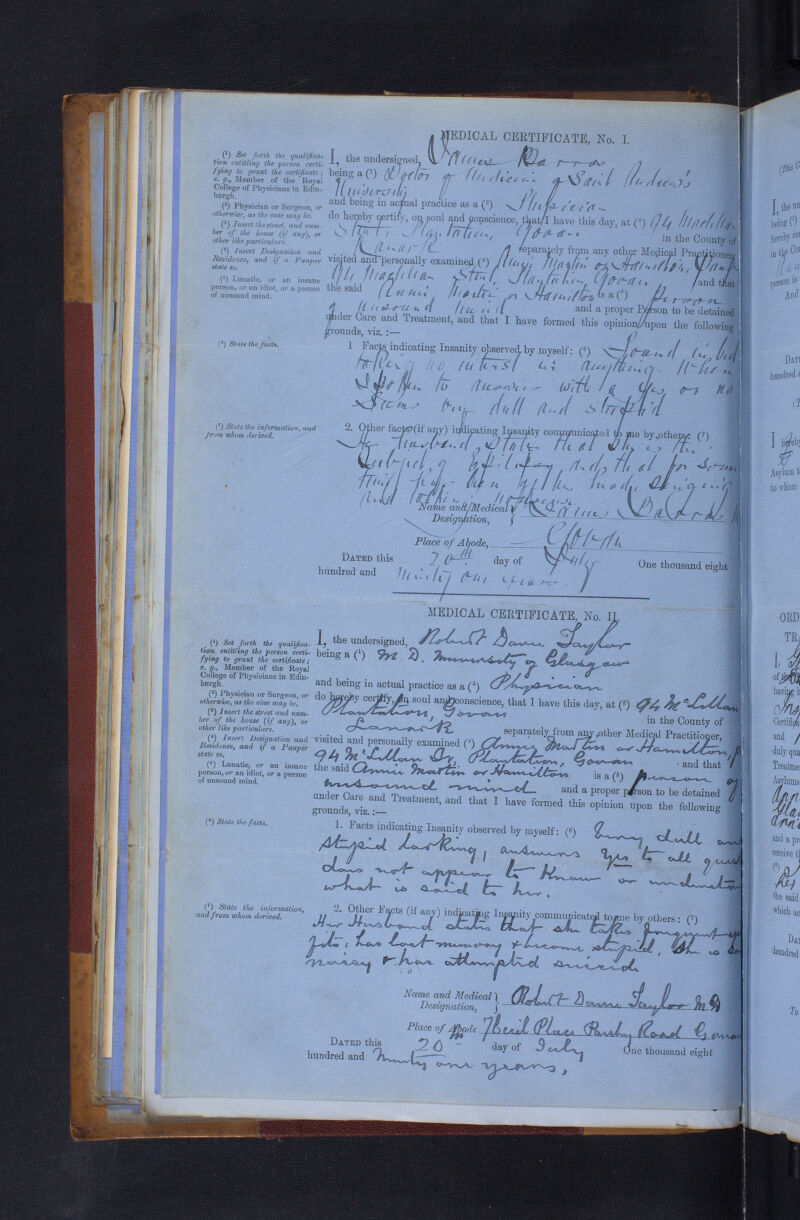 MEDICAL CERTIFICATE, No. I.
(¹) Set forth the qualifica-
tion entitling the person certi-
fying to grant the certificate;
e. g., Member of the Royal
College of Physicians in Edin-
burgh.
(²) Physician or Surgeon, or
otherwise, as the case may be.
(³) Insert the street, and num-
ber of the house (if any), or
other like particulars.
(⁴) Insert Designation and
Residence, and if a Pauper
state so.
(⁵) Lunatic, or an insane
person, or an idiot, or a person
of unsound mind.
I, the undersigned, James Barras
being a (¹) Doctor of Medicine of Saint Andrew's
University
and being in actual practice as a (²) Physician
do hereby certify, on soul and conscience, that I have this day, at (³) 94 Maclellan
Street, Plantation, Govan in the County of
Lanark separately from any other Medical Practitioner,
visited and personally examined (⁴) Annie Martin or Hamilton,
94 Maclellan Street Plantation Govan and that
the said Annie Martin or Hamilton is a (⁵) person
of unsound mind and a proper Person to be detained
under Care and Treatment, and that I have formed this opinion upon the following
grounds, viz. :—
(⁶) State the facts.
1 Facts indicating Insanity observed by myself: (⁶) Found in bed
taking no interest in anything. When
spoken to answers with a yes or no
Seems very dull and stupid
(⁷) State the information, and
from whom derived.
2. Other facts (if any) indicating Insanity communicated to me by others: (⁷)
husband states that she is the
subject of Epilepsy and that for some
time has been
and
Name and Medical Designation, James Barras
Place of Abode, Govan
DATED this 20th day of July One thousand eight
hundred and ninety one years.
MEDICAL CERTIFICATE, No. II.
(¹) Set forth the qualifica-
tion entitling the person certi-
fying to grant the certificate;
e. g., Member of the Royal
College of Physicians in Edin-
burgh.
(²) Physician or Surgeon, or
otherwise, as the case may be.
(³) Insert the street and num-
ber of the house (if any), or
other like particulars.
(⁴) Insert Designation and
Residence, and if a Pauper
state so.
(⁵) Lunatic, or an insane
person, or an idiot, or a person
of unsound mind.
I, the undersigned, Robert Taylor
being a (¹) M.D. University of Glasgow
and being in actual practice as a (²) Physician
do hereby certify, on soul and conscience, that I have this day, at (³) 94 McLellan
Plantation, Govan in the County of
Lanark separately from any other Medical Practitioner,
visited and personally examined (⁴) Annie Martin or Hamilton,
94 McLellan St, Plantation, Govan and that
the said Annie Martin or Hamilton is a (⁵) person of
unsound mind and a proper person to be detained
under Care and Treatment, and that I have formed this opinion upon the following
grounds, viz. :—
(⁶) State the facts.
1. Facts indicating Insanity observed by myself: (⁶) Very dull
stupid looking, answers Yes to all
does not appear to know or
what is said to her.
(⁷) State the information,
and from whom derived.
2. Other Facts (if any) indicating Insanity communicated to me by others: (⁷)
Her Husband states that she takes frequent
fits: has lost memory & become stupid. She is
noisy & has attempted suicide
Name and Medical Designation, Robert Taylor M.D
Place of Abode 7 Cecil Place Paisley Road Govan
DATED this 20th day of July One thousand eight
hundred and Ninety one years.